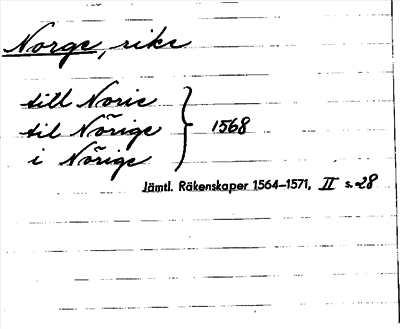 Norge, rike
till Norie
til Nörige
i Nörige
} 1568
Jämtl. Räkenskaper 1564–1571, II s. 28